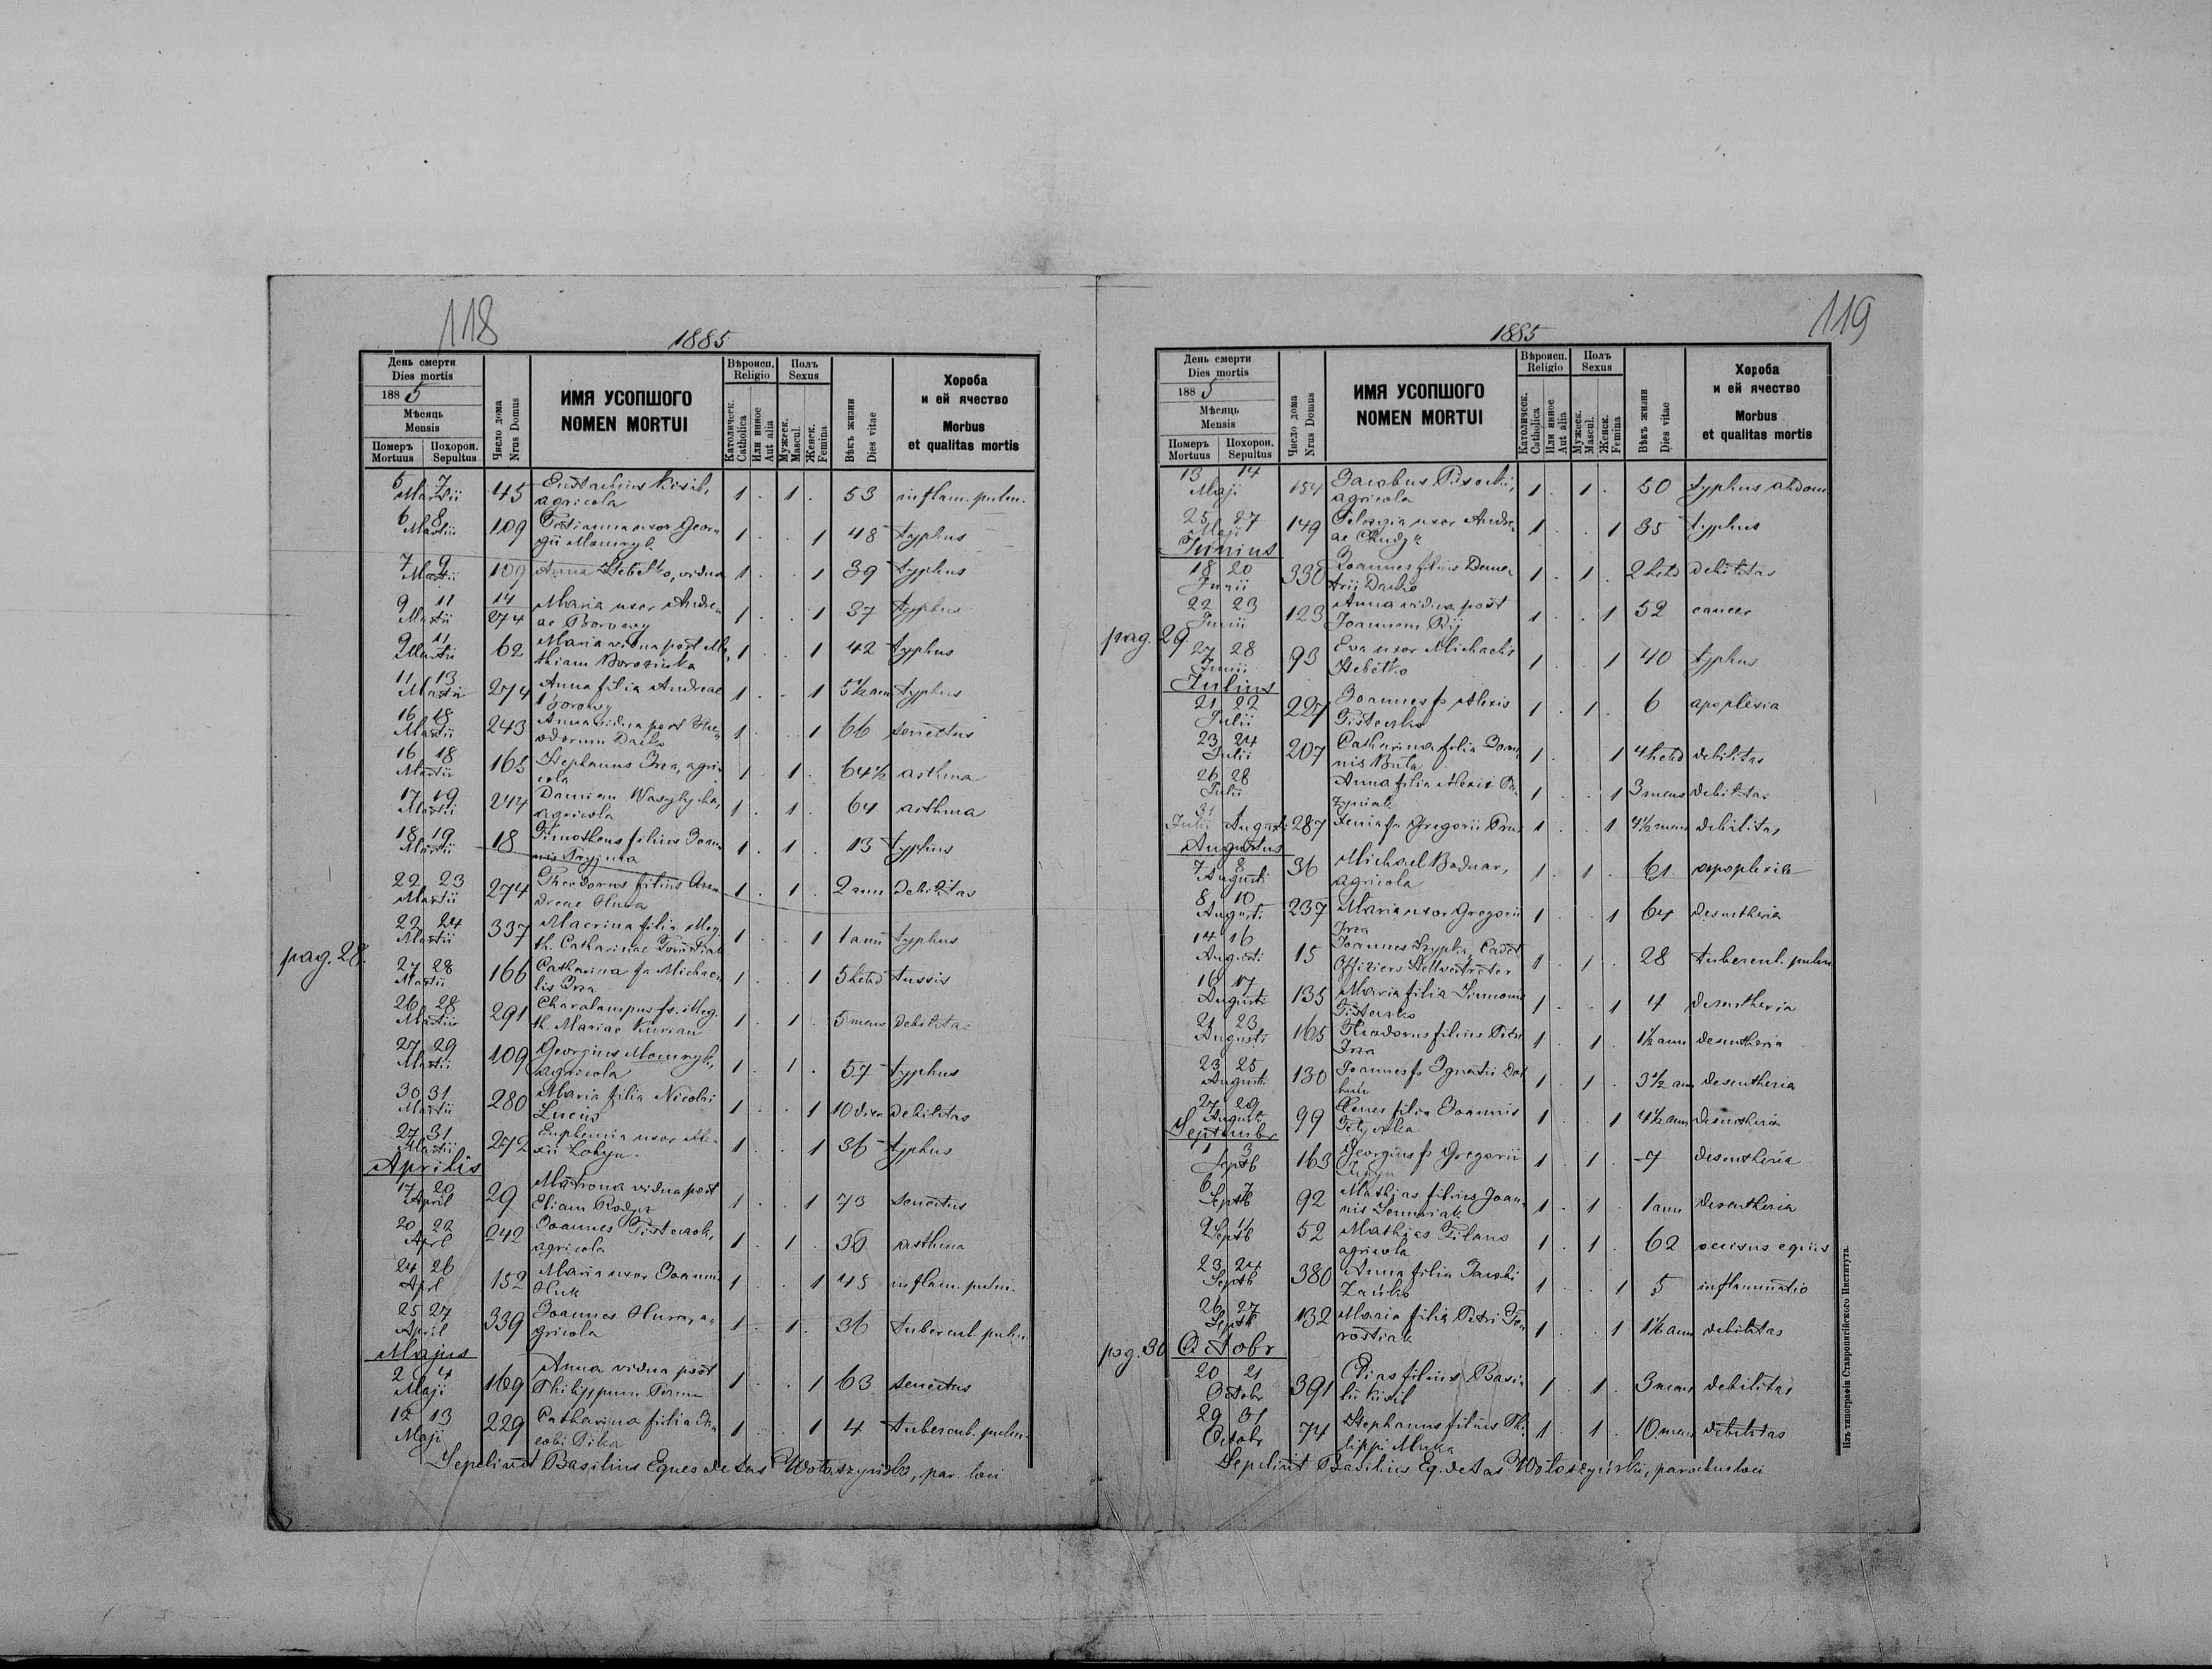 118
1885
День смерти
Dies mortis
1885
Мѣсяць
Mensis
Померъ Mortuus
Похорон. Sepultus
Число дома
Nrus Domus
ИМЯ УСОПШОГО
NOMEN MORTUI
Вѣроисп.
Religio
Католическ. Catholica
Или инное Aut alia
Полъ
Sexus
Мужеск. Mascul.
Женск. Femina
Вѣкъ жизни
Dies vitae
Хороба
и ей ячество
Morbus
et qualitas mortis
5 7 Martii 45 Eustachius Kisil, agricola 1 . 1 . 53 inflam. pulm.
6 8 Martii 109 uxor Georgii 1 . . 1 48 typhus
7 9 Martii 109 Anna Stebelko, vidua 1 . . 1 39 typhus
9 11 Martii 14 274 Maria uxor Andreae Borowy 1 . . 1 37 typhus
9 11 Martii 62 Maria vidua post Mathiam 1 . . 1 42 typhus
11 13 Martii 274 Anna filia Andreae Borowy 1 . . 1 5½ ann typhus
16 18 Martii 243 Anna vidua post Theodorum 1 . . 1 66 senectus
16 18 Martii 165 Stephanus agricola 1 . 1 . 64½ asthma
17 19 Martii 244 Damian Wasylycha, agricola 1 . 1 . 64 asthma
18 19 Martii 18 Timotheus filius Joannis 1 . 1 . 13 typhus
22 23 Martii 274 Theodorus filius Andreae 1 . 1 . 2 ann debilitas
22 24 Martii 337 Macrina filia illeg. th. Catharinae 1 . . 1 1 anni typhus
pag. 28.
27 28 Martii 166 Catharina fa Michaelis 1 . . 1 5 hebd tussis
26 28 Martii 291 Charalampus fs. illeg. th. Mariae Kurian 1 . 1 . 5 mens debilitas
27 29 Martii 109 Georgius agricola 1 . 1 . 57 typhus
30 31 Martii 280 Maria filia Nicolai 1 . . 1 10 dies debilitas
27 31 Martii 272 Euphemia uxor Alexii 1 . . 1 36 typhus
Aprilis
17 20 April 29 Matrona vidua post Eliam 1 . . 1 73 senectus
20 22 Aprl 242 Joannes agricola 1 . 1 . 36 asthma
24 26 Aprl 152 Maria uxor Joannis Huk 1 . . 1 45 inflam. pulm.
25 27 April 339 Joannes agricola 1 . 1 . 36 tubercul. pulm.
Majus
2 4 Maji 169 Anna vidua post Philippum 1 . . 1 63 senectus
12 13 Maji 229 Catharina filia Jacobi Pika 1 . . 1 4 tubercul. pulm.
Sepelivit Basilius Eques de Wołoszyński, par. loci
119
1885
День смерти
Dies mortis
1885
Мѣсяць
Mensis
Померъ Mortuus
Похорон. Sepultus
Число дома
Nrus Domus
ИМЯ УСОПШОГО
NOMEN MORTUI
Вѣроисп.
Religio
Католическ. Catholica
Или инное Aut alia
Полъ
Sexus
Мужеск. Mascul.
Женск. Femina
Вѣкъ жизни
Dies vitae
Хороба
и ей ячество
Morbus
et qualitas mortis
13 14 Maji 154 Jacobus agricola 1 . 1 . 50 typhus abdom
25 27 Maji 149 Pelagia uxor Andreae 1 . . 1 35 typhus
Junius
18 20 Junii 330 Joannes filius Demetrii 1 . 1 . 2 hebd debilitas
22 23 Junii 123 Anna vidua post Joannem 1 . . 1 52 cancer
pag. 29.
27 28 Junii 93 Eva uxor Michaelis Stebelko 1 . . 1 40 typhus
Julius
21 22 Julii 227 Joannes fs Alexis 1 . 1 . 6 apoplexia
23 24 Julii 207 Catharina filia Joannis 1 . . 1 4 hebd debilitas
26 28 Julii Anna filia Alexii 1 . . 1 3 mens debilitas
31 Julii Augusti 287 Xenia fa Gregorii 1 . . 1 4½ mens debilitas
Augustus
7 8 Augusti 36 Michael Bodnar, agricola 1 . 1 . 61 apoplexia
8 10 Augusti 237 Maria uxor Gregorii 1 . . 1 64 desentheria
14 16 Augusti 15 Joannes Szypka, Cadet Offiziers Stellvertreter 1 . 1 . 28 tubercul. pulm.
16 17 Augusti 135 Maria filia Simeonis 1 . . 1 4 desentheria
21 23 Augusti 165 Theodorus filius Petri 1 . 1 . 1½ ann desentheria
23 25 Augusti 130 Joannes fs Ignatii 1 . 1 . 3½ ann desentheria
27 29 Augusti 99 filia Joannis 1 . . 1 4½ ann desentheria
Septembr
1 3 Septb 163 Georgius fs Gregorii 1 . 1 . 7 desentheria
6 7 Septb 92 Mathias filius Joannis 1 . 1 . 1 ann desentheria
9 11 Septb 52 Mathias agricola 1 . 1 . 62 occisus equis
23 24 Septb 380 Anna filia 1 . . 1 5 inflammatio
26 27 Septb 132 Maria filia Petri 1 . . 1 1½ ann debilitas
pag. 30
Octobr
20 21 Octobr 391 Elias filius Basilii Kisil 1 . 1 . 3 mens debilitas
29 31 Octobr 74 Stephanus filius Philippi Muka 1 . 1 . 10 mens debilitas
Sepelivit Basilius Eq. de Wołoszyński, parochus loci
Изъ типографіи Ставропигійского Института.